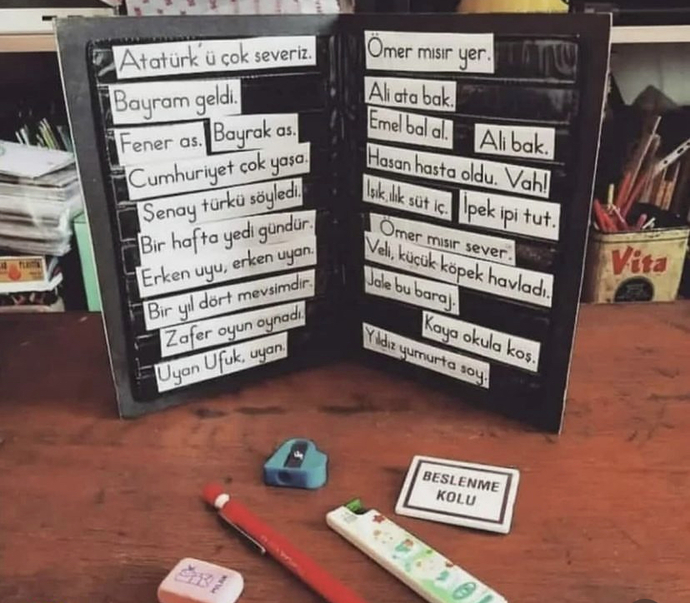 Atatürk'ü çok severiz.
Bayram geldi.
Fener as. Bayrak as.
Cumhuriyet çok yaşa.
Şenay türkü söyledi.
Bir hafta yedi gündür.
Erken uyu, erken uyan.
Bir yıl dört mevsimdir.
Zafer oyun oynadı.
Uyan Ufuk, uyan.
Ömer mısır yer.
Ali ata bak.
Emel bal al. Ali bak.
Hasan hasta oldu. Vah!
Işık, ılık süt iç. İpek ipi tut.
Ömer mısır sever.
Veli, küçük köpek havladı.
Jale bu baraj.
Kaya okula koş.
Yıldız yumurta soy.
Vita
BESLENME
KOLU